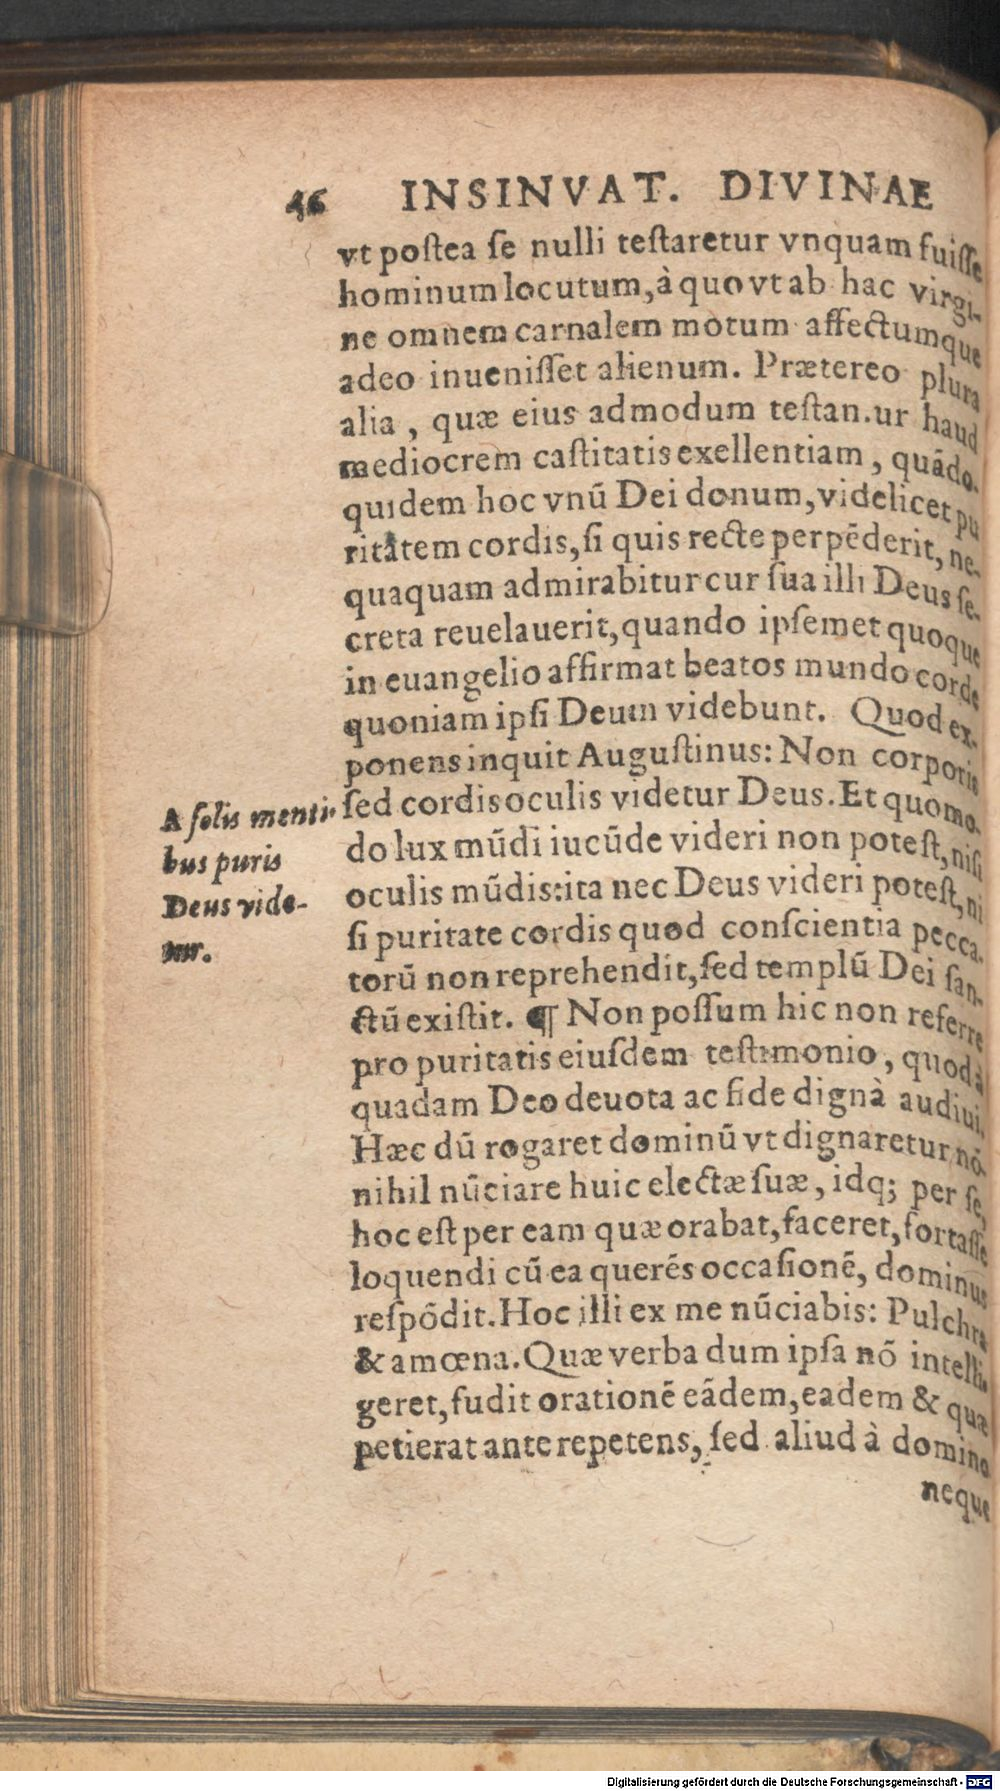 46 INSINVAT. DIVINAE
vt poſtea ſe nulli teſtaretur vnquam fuiſſe
hominum locutum, à quo vt ab hac virgi-
ne omnem carnalem motum affectumque
adeo inueniſſet alienum. Prætereo plura
alia, quæ eius admodum teſtan.ur haud
mediocrem caſtitatis exellentiam, quãdo-
quidem hoc vnũ Dei donum, videlicet pu
ritatem cordis, ſi quis recte perpẽderit, ne-
quaquam admirabitur cur ſua illi Deus ſe-
creta reuelauerit, quando ipſemet quoque
in euangelio affirmat beatos mundo corde
quoniam ipſi Deum videbunt. Quod ex-
ponens inquit Auguſtinus: Non corporis
ſed cordis oculis videtur Deus. Et quomo-
do lux mũdi iucũde videri non poteſt, niſi
oculis mũdis: ita nec Deus videri poteſt, ni
ſi puritate cordis quod conſcientia pecca-
torũ non reprehendit, ſed templũ Dei ſan-
ctũ exiſtit. ¶ Non poſſum hic non referre
pro puritatis eiuſdem teſtimonio, quod à
quadam Deo deuota ac fide dignà audiui.
Hæc dũ rogaret dominũ vt dignaretur nõ-
nihil nũciare huic electæ ſuæ, idq; per ſe,
hoc eſt per eam quæ orabat, faceret, fortaſſe
loquendi cũ ea querẽs occaſionẽ, dominus
reſpõdit. Hoc illi ex me nũciabis: Pulchra
& amœna. Quæ verba dum ipſa nõ intelli-
geret, fudit orationẽ eãdem, eadem & quæ
petierat ante repetens, ſed aliud à domino
neque
A ſolis menti-
bus puris
Deus vide-
tur.
Digitalisierung gefördert durch die Deutsche Forschungsgemeinschaft - DFG